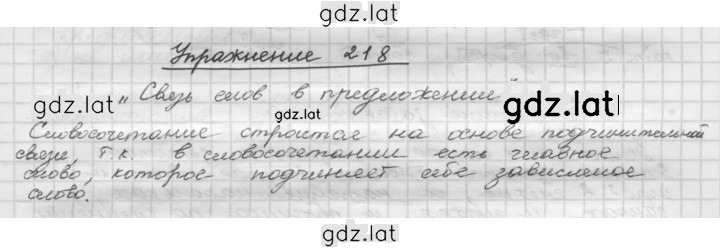 gdz.lat
Упражнение 218
gdz.lat "Связь слов в предложении" gdz.lat
gdz.lat
Словосочетание строится на основе подчинительной
связи, т.к. в словосочетании есть главное
слово, которое подчиняет себе зависимое
слово.
gdz.lat